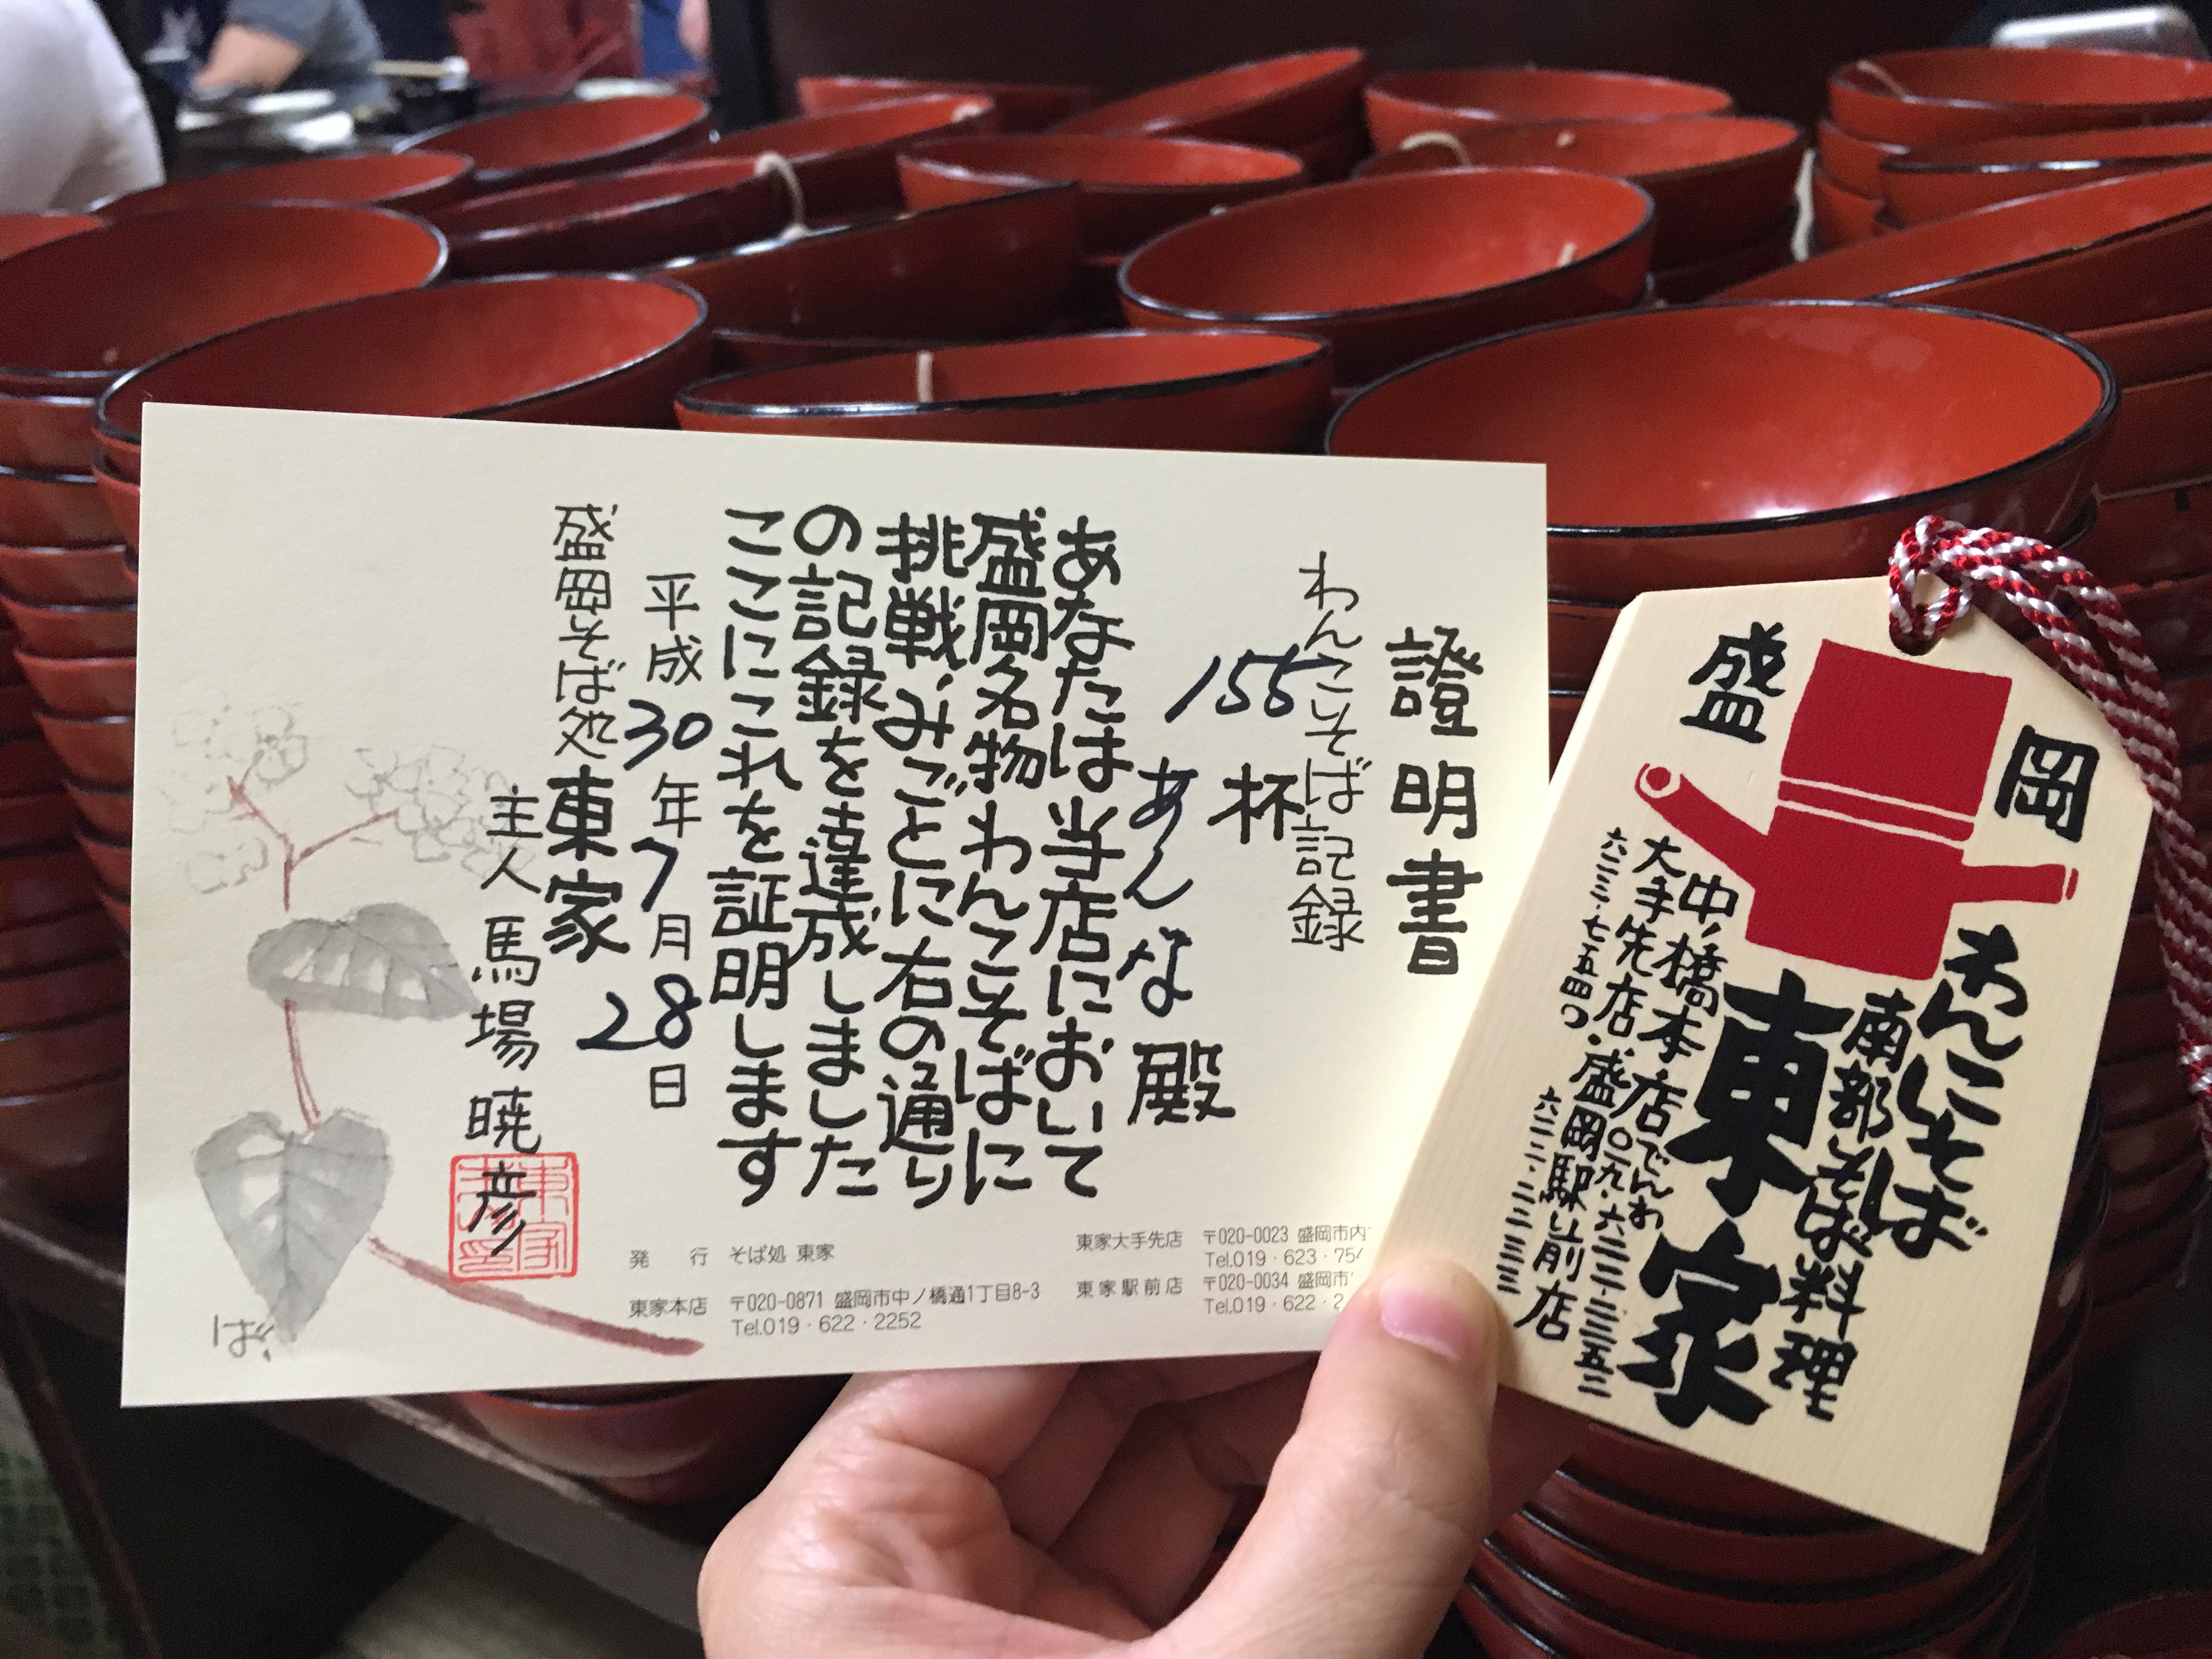 證明書
わんこそば記録
155杯
あんな殿
あなたは当店において
盛岡名物わんこそばに
挑戦、みごとに右の通り
の記録を達成しました
ここにこれを証明します
平成30年7月28日
盛岡そば処東家
主人馬場暁彦
ば
発行 そば処 東家
東家本店 〒020-0871 盛岡市中ノ橋通1丁目8-3
Tel.019・622・2252
東家大手先店 〒020-0023 盛岡市内
Tel.019・623・75
東家駅前店 〒020-0034 盛岡市
Tel.019・622・2
盛岡
わんこそば
南部そば料理
東家
中ノ橋本店でんわ〇一九・六二二・二二五二
大手先店・盛岡駅前店
六二三・七五四〇
六二二・二二三三